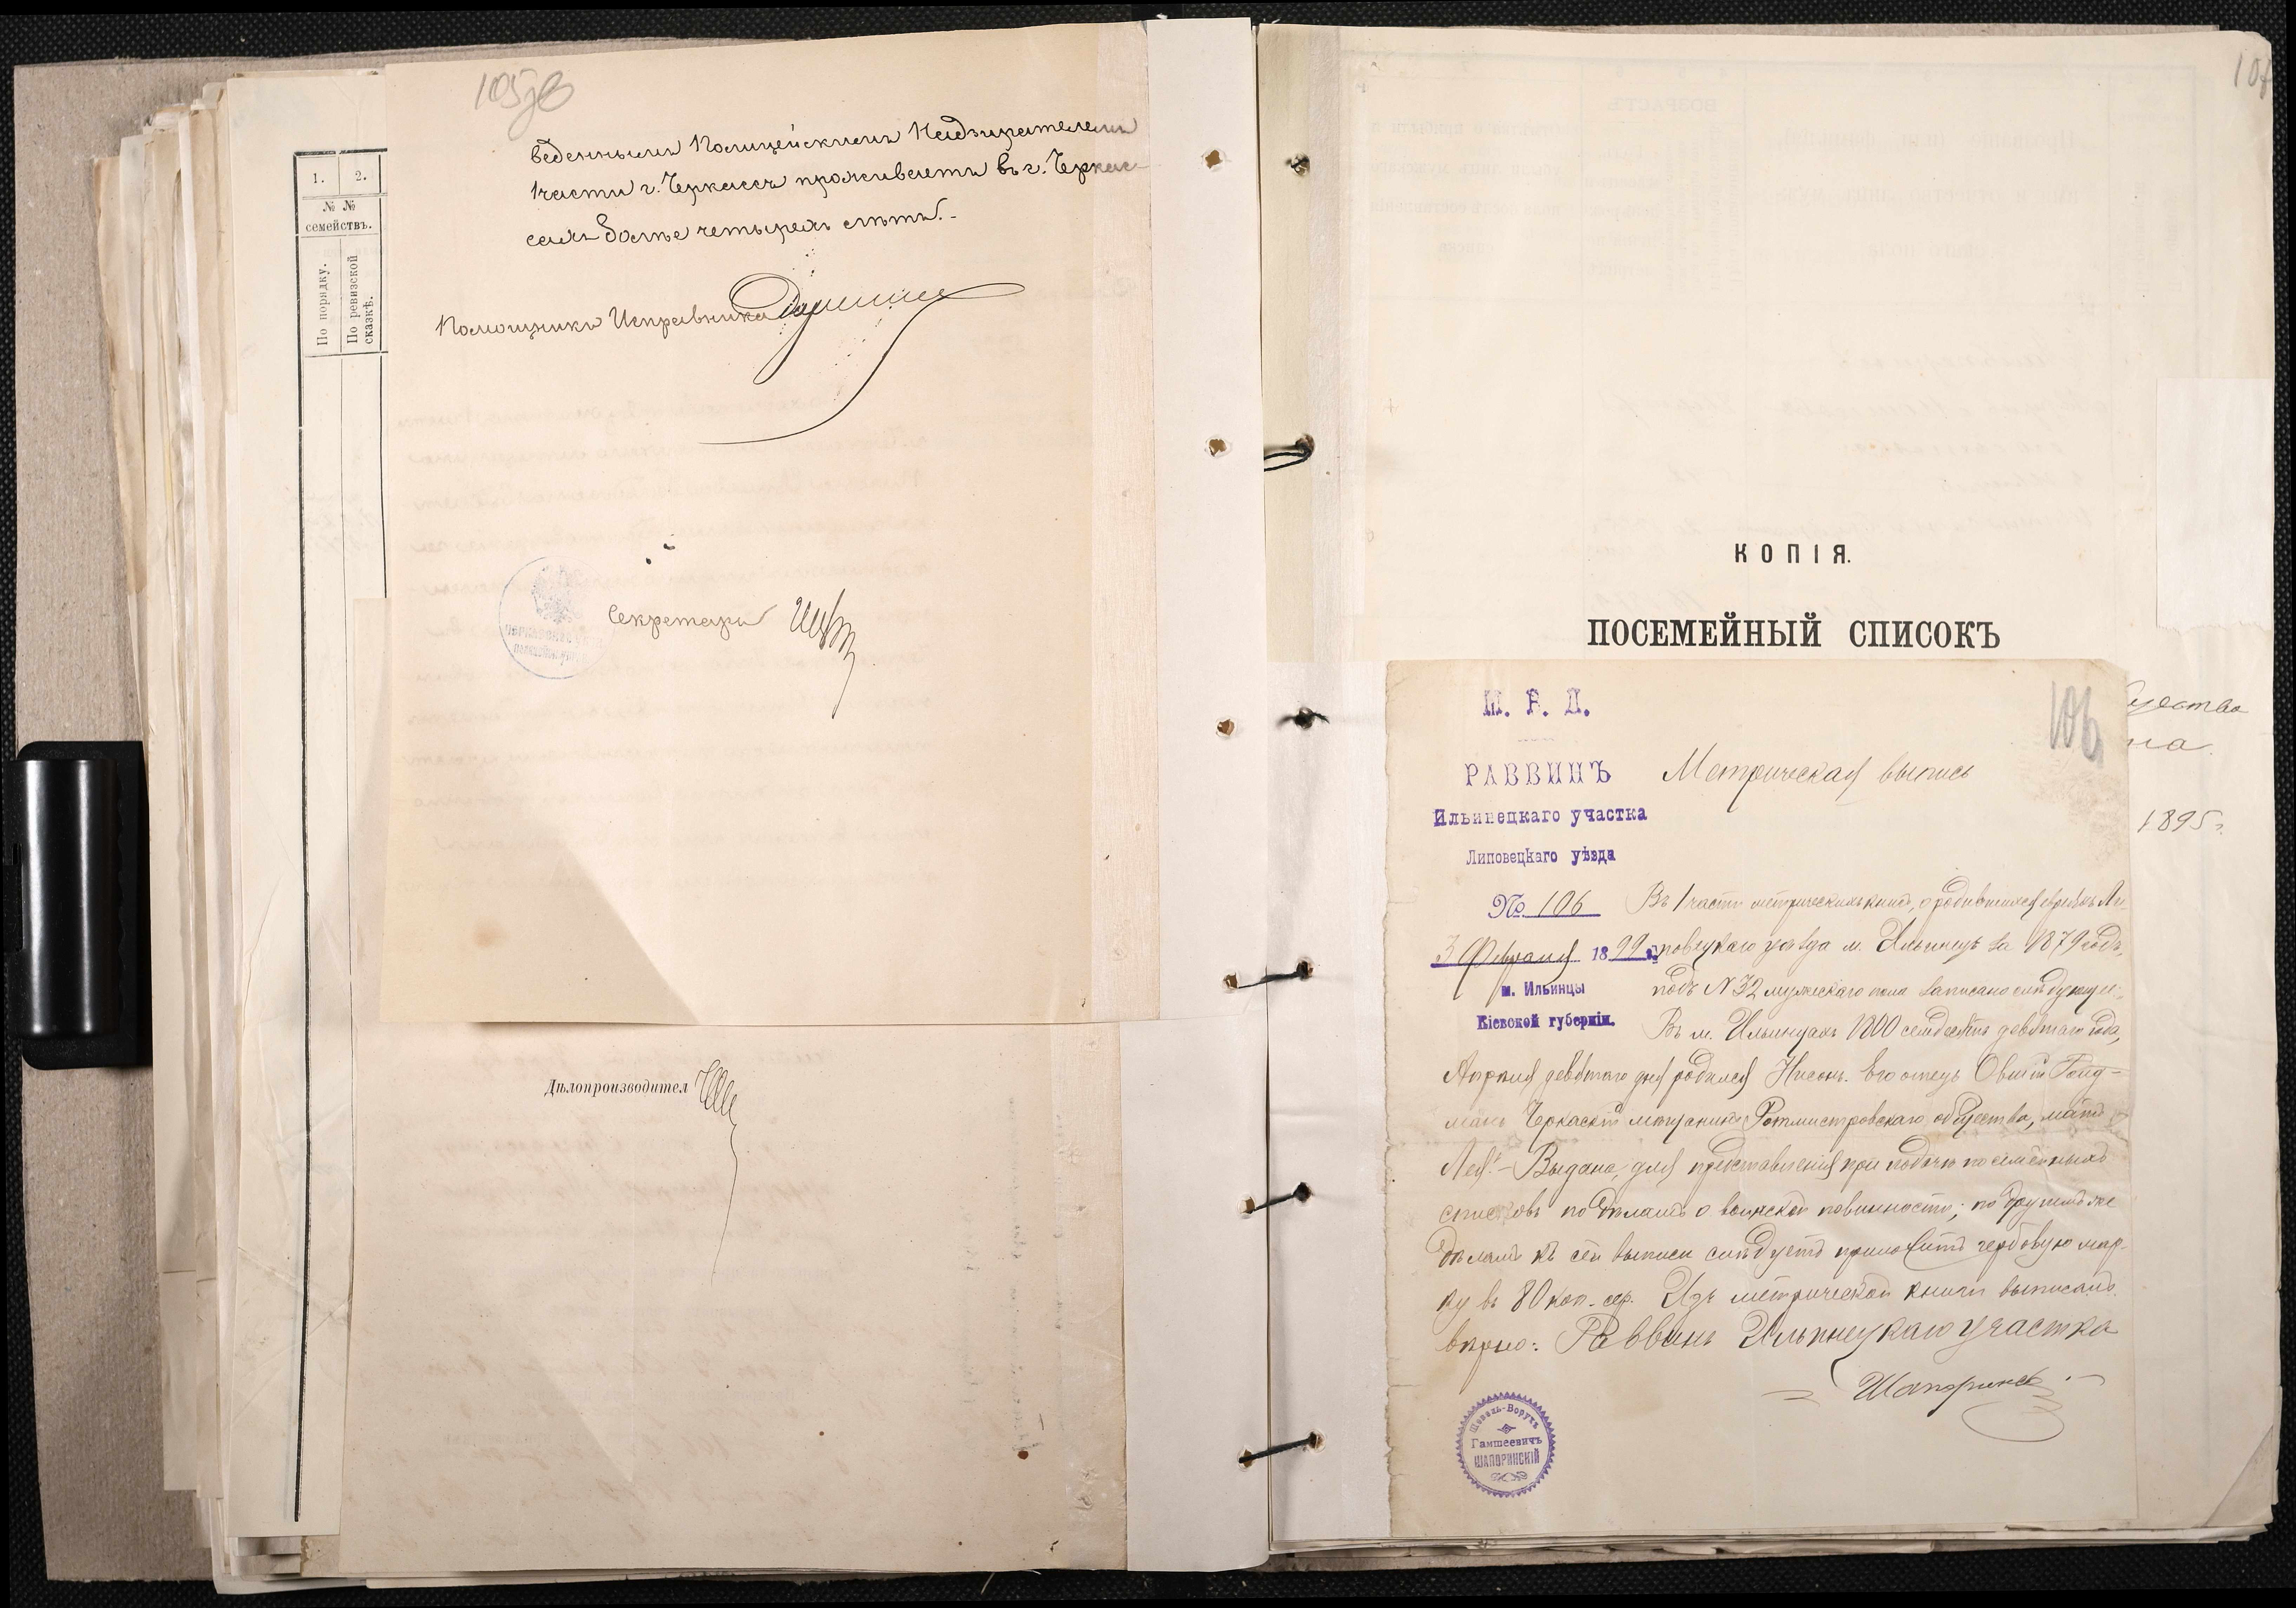 105 об
веденнымъ Полицейскимъ Надзирателемъ
1 части г. Черкассъ проживаетъ въ г. Черкас-
сахъ болѣе четырехъ лѣтъ.-
Помощникъ Исправника
Секретарь
1.
2.
№ №
семействъ.
По порядку.
По ревизской сказкѣ.
Дѣлопроизводител
КОПІЯ.
ПОСЕМЕЙНЫЙ СПИСОКЪ
1895 г.
106
М. В. Д.
РАВВИНЪ
Ильинецкаго участка
Липовецкаго уѣзда
№ 106
3 Февраля 1899 г.
м. Ильинцы
Кіевской губерніи.
Метрическая выпись
Въ 1 части метрическихъ книгъ, о родившихся евреяхъ Ли-
повецкаго уѣзда м. Ильинецъ за 1879 годъ,
подъ N 32 мужескаго пола записано слѣдующее:
Въ м. Ильинцахъ 1800 семдесятъ девятаго года,
Апрѣля девятаго дня родился Нисонъ. Его отецъ Овшій Гойд-
манъ Черкаскій мѣщанинъ Ротмистровскаго общества, мать
Лея.- Выдана, для представленія при подачѣ посемейныхъ
списковъ по дѣламъ о воинской повинности; по другимъ же
дѣламъ къ сей выписи слѣдуетъ приложить гербовую мар-
ку въ 80 коп. сер. Изъ метрической книги выписалъ
вѣрно: Раввинъ Ильинецкаго участка
Шапоринск
Гамшеевичъ
ШАПОРИНСКІЙ